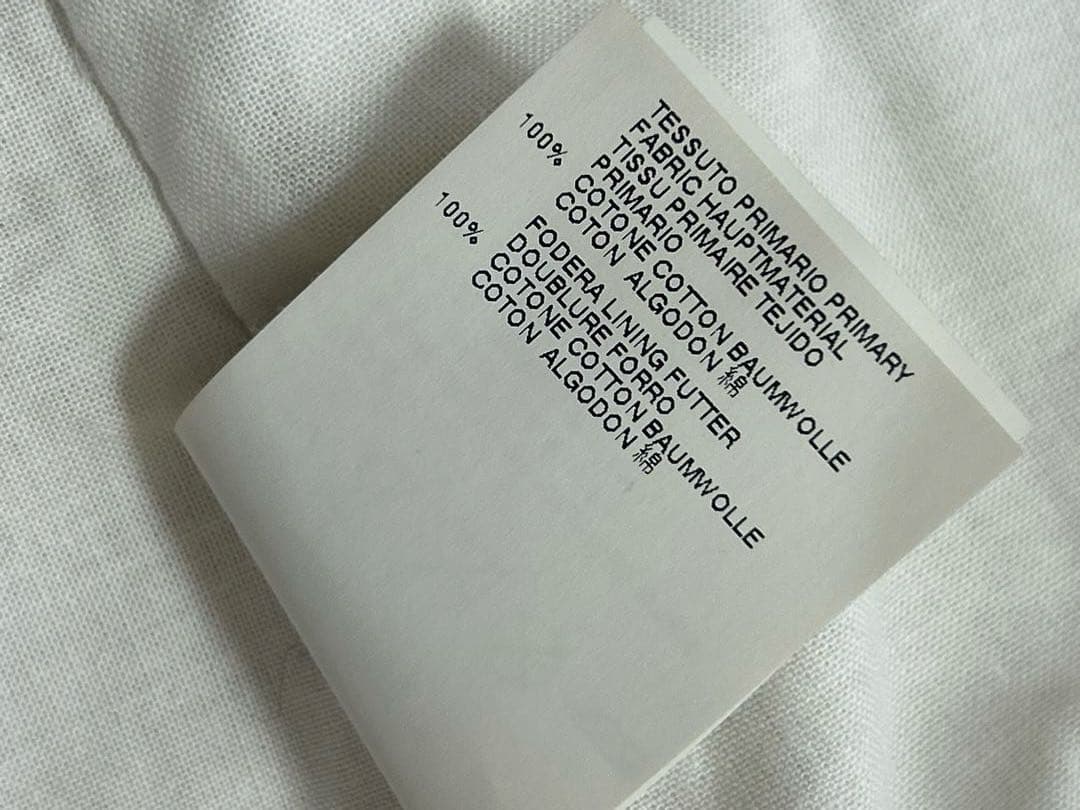 TESSUTO PRIMARIO PRIMARY
FABRIC HAUPTMATERIAL
TISSU PRIMAIRE TEJIDO
PRIMARIO
100% COTONE COTTON BAUMWOLLE
COTON ALGODON 綿
FODERA LINING FUTTER
DOUBLURE FORRO
100% COTONE COTTON BAUMWOLLE
COTON ALGODON 綿